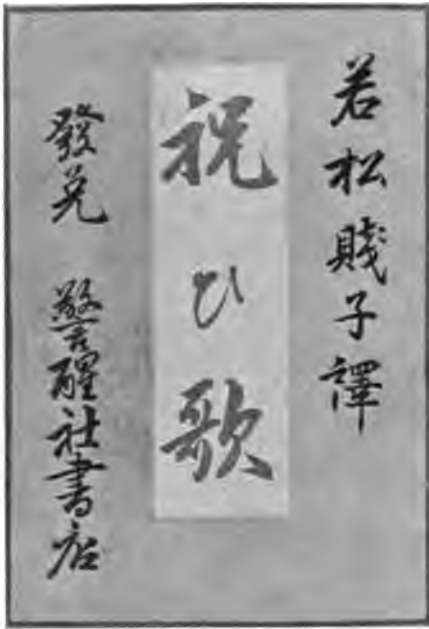 若松賤子譯
祝ひ歌
發兌 警醒社書店